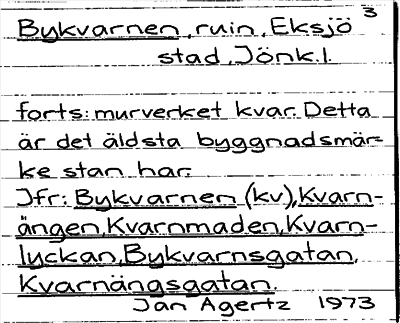 3
Bykvarnen, ruin, Eksjö
stad, Jönk.l.
forts: murverket kvar. Detta
är det äldsta byggnadsmär-
ke stan har.
Jfr: Bykvarnen (kv), Kvarn-
ängen, Kvarnmaden, Kvarn-
lyckan, Bykvarnsgatan,
Kvarnängsgatan.
Jan Agertz 1973